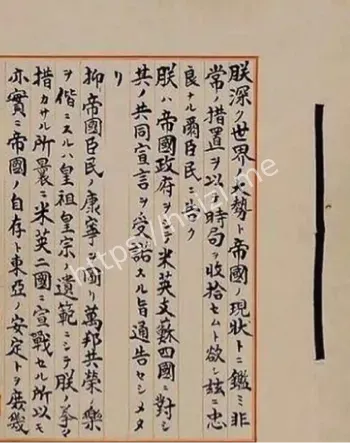 朕深ク世界ノ大勢ト帝國ノ現狀トニ鑑ミ非
常ノ措置ヲ以テ時局ヲ收拾セムト欲シ茲ニ忠
良ナル爾臣民ニ告ク
朕ハ帝國政府ヲシテ米英支蘇四國ニ對シ
其ノ共同宣言ヲ受諾スル旨通告セシメタ
リ
抑帝國臣民ノ康寧ヲ圖リ萬邦共榮ノ樂
ヲ偕ニスルハ皇祖皇宗ノ遺範ニシテ朕ノ拳々
措カサル所曩ニ米英二國ニ宣戰セル所以モ
亦實ニ帝國ノ自存ト東亞ノ安定トヲ庶幾